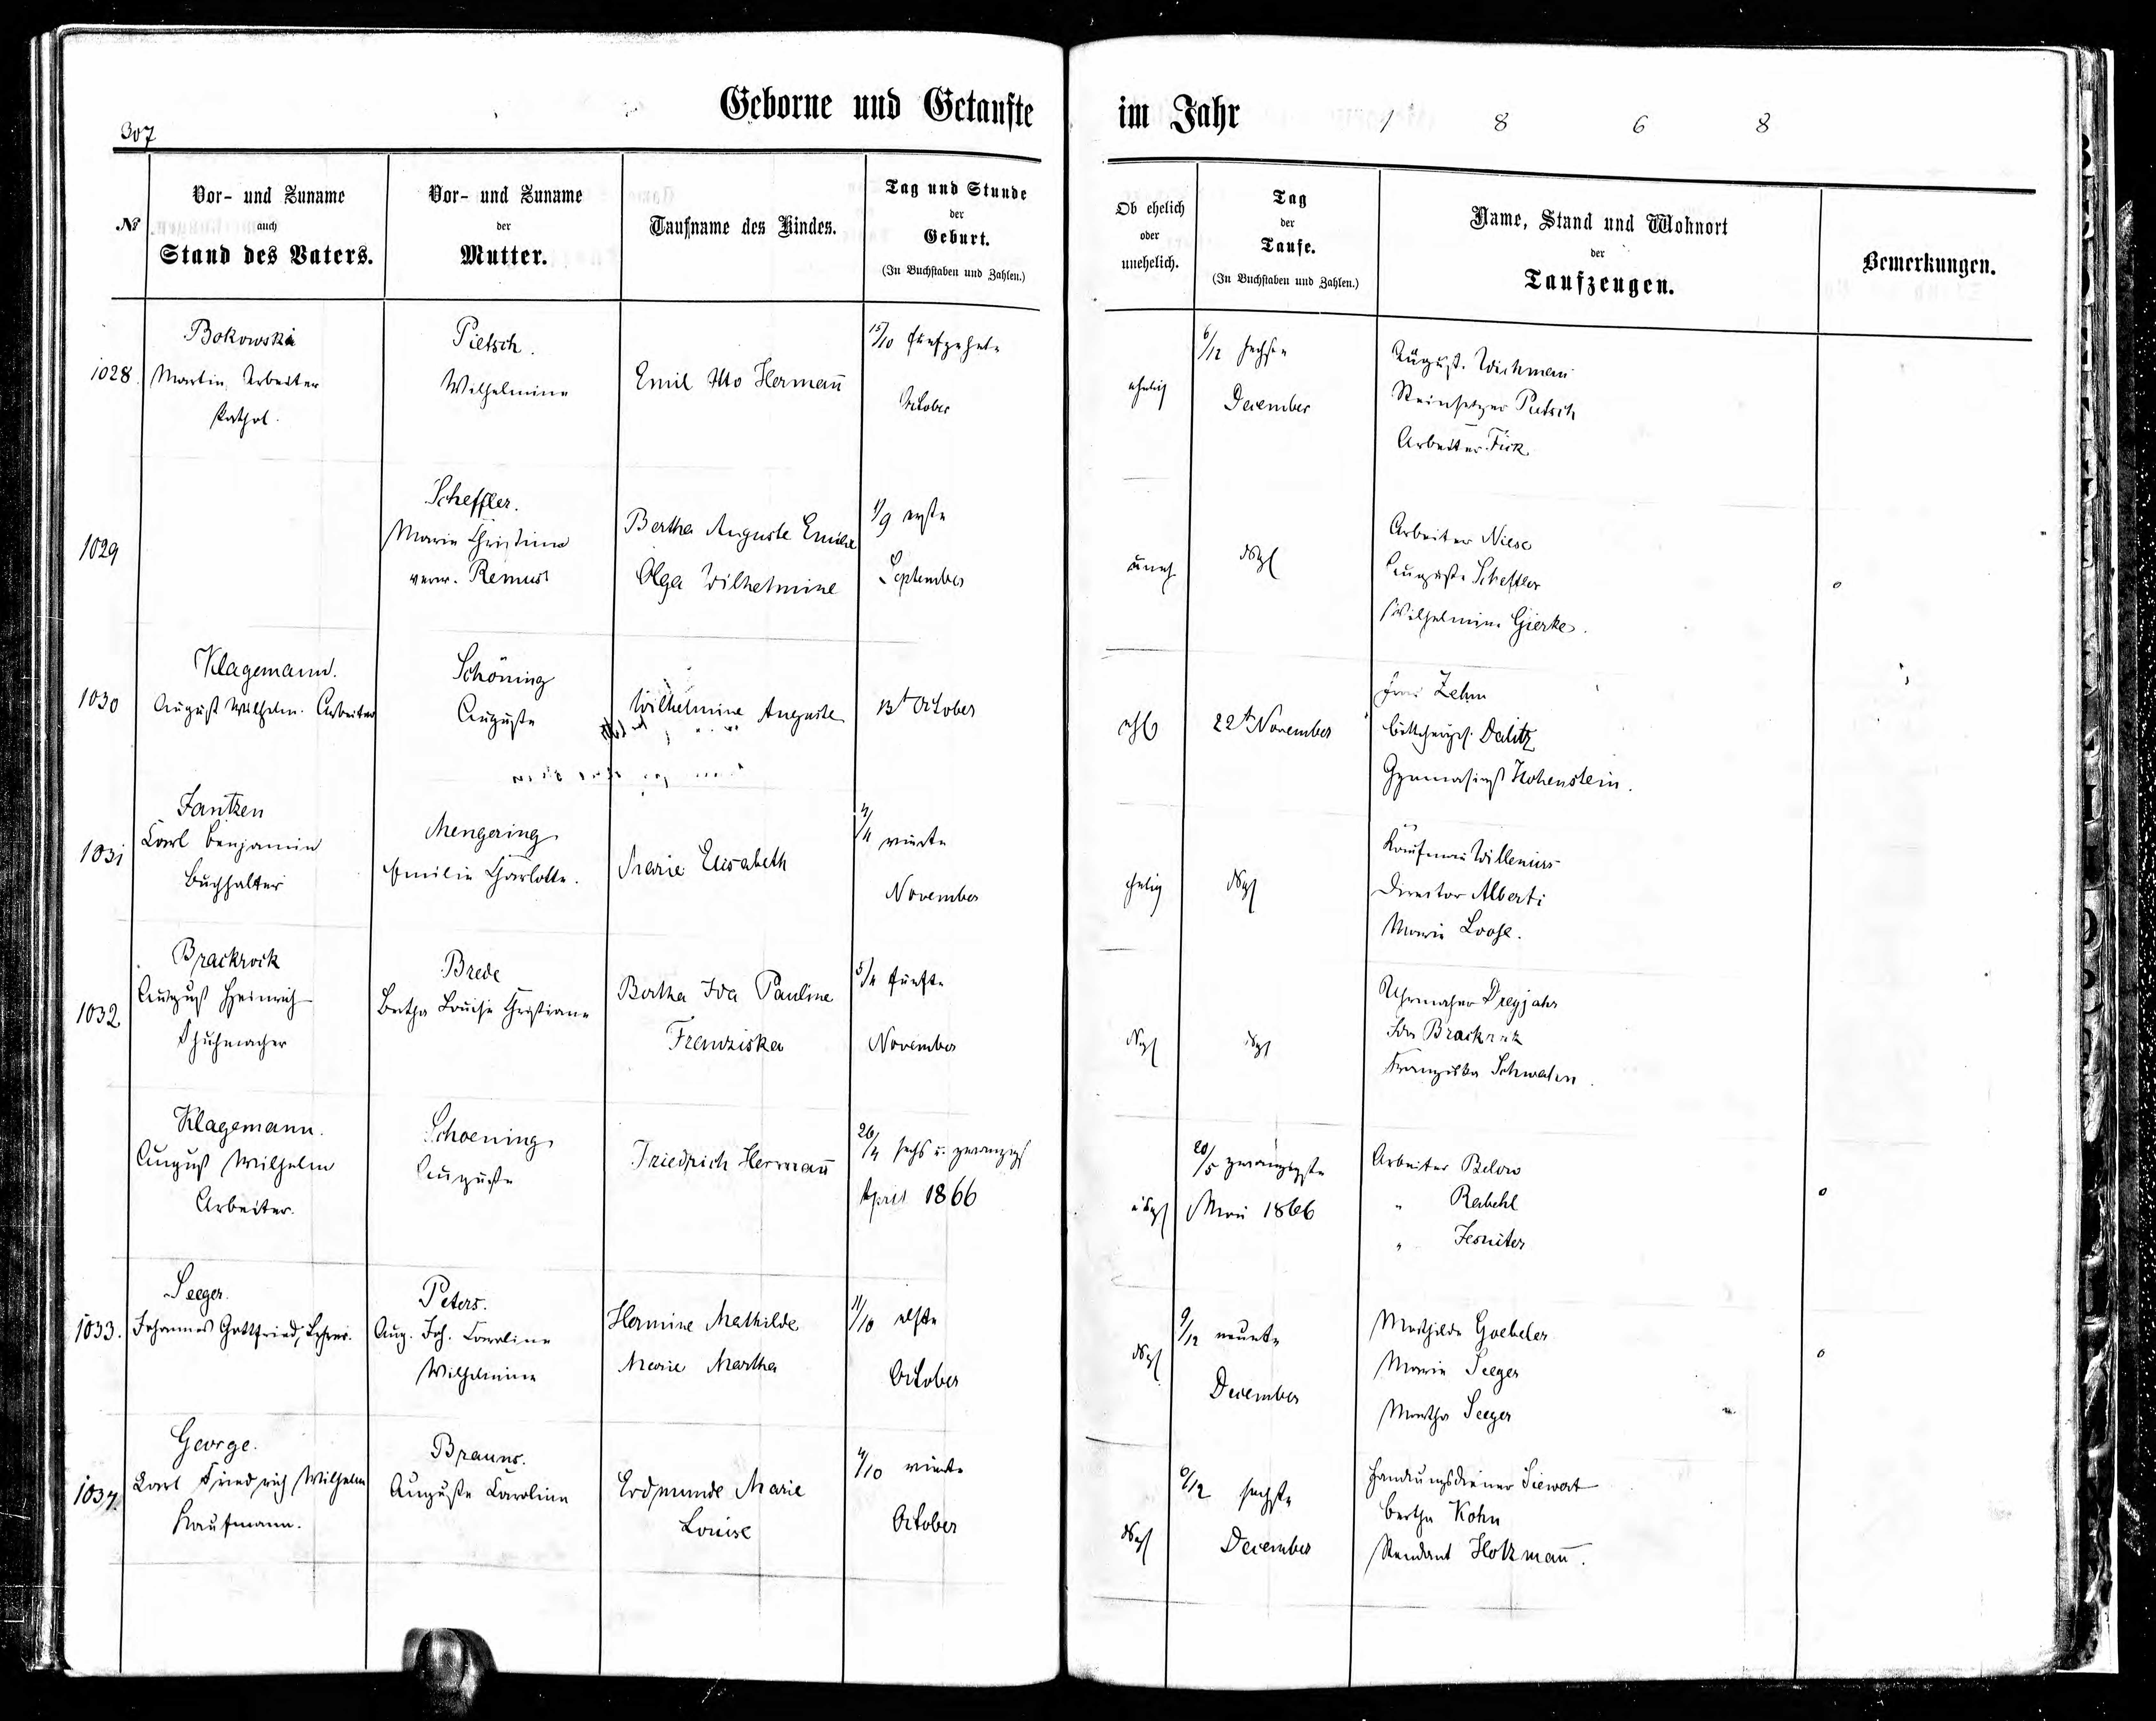 Geborne und Getaufte im Jahr 1868
307
№
Vor- und Zuname
auch
Stand des Vaters.
Vor- und Zuname
der
Mutter.
Taufname des Kindes.
Tag und Stunde
der
Geburt.
(In Buchstaben und Zahlen.)
Ob ehelich
oder
unehelich.
Tag
der
Taufe.
(In Buchstaben und Zahlen.)
Name, Stand und Wohnort
der
Taufzeugen.
Bemerkungen.
1028.
Bokowski
Martin, Arbeiter
kathol.
Pietsch.
Wilhelmine
Emil Otto Herman̄
15/10 fünfzehnte
October
ehelig
6/12 sechste
December
August Wichman
Steinsetzer Pietsch
Arbeiter Fick
1029
Scheffler.
Marie Christine
verw. Remus
Bertha Auguste Emilie
Olga Wilhelmine
1/9 erste
September
uneh
dsgl
Arbeiter Niese
Auguste Scheffler
Wilhelmine Gierke.
1030
Klagemann.
August Wilhelm. Arbeiter
Schöning
Auguste
Wilhelmine Auguste
13t October
ehl
22t November
Frau Zehm
Böttcherges. Dalitz
Gymnasiast Hohenstein.
1031
Jantzen
Carl Benjamin
Buchhalter
Mengering
Emilie Charlotte.
Marie Elisabeth
4/11 vierte
November
ehelig
dsgl
Kaufman Willenius
Director Alberti
Marie Loose.
1032
Brackrock
August Heinrich
Schuhmacher
Brede
Bertha Louise Christiane
Bertha Ida Pauline
Franziska
5/11 fünfte
November
dsgl
dsgl
Uhrmacher Dreyjahr
Ida Brackrock
Franziska Schwalm.
Klagemann.
August Wilhelm
Arbeiter.
Schoening
Auguste
Friedrich Herman̄
26/4 sechs u. zwanzigst
April 1866
dsgl
20/5 zwanzigste
Mai 1866
Arbeiter Below
" Rabehl
" Jesniter
1033.
Seeger.
Johannes Gottfried, Lehrer.
Peters.
Aug. Joh. Caroline
Wilhelmine
Hermine Mathilde
Marie Martha
11/10 elfte
October
dsgl
9/12 neunte
December
Mathilde Goebeler
Marie Seeger
Martha Seeger
1034.
George.
Carl Friedrich Wilhelm
Kaufmann.
Brauns.
Auguste Caroline
Erdmunde Marie
Louise
4/10 vierte
October
dsgl
6/12 sechste
December
Handlungsdiener Siewert
Bertha Kohn
Rendant Holzman̄.